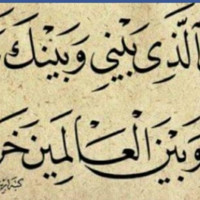 الَّذِي بَيْنِي وَبَيْنَكَ
وَبَيْنَ الْعَالَمِينَ خَر